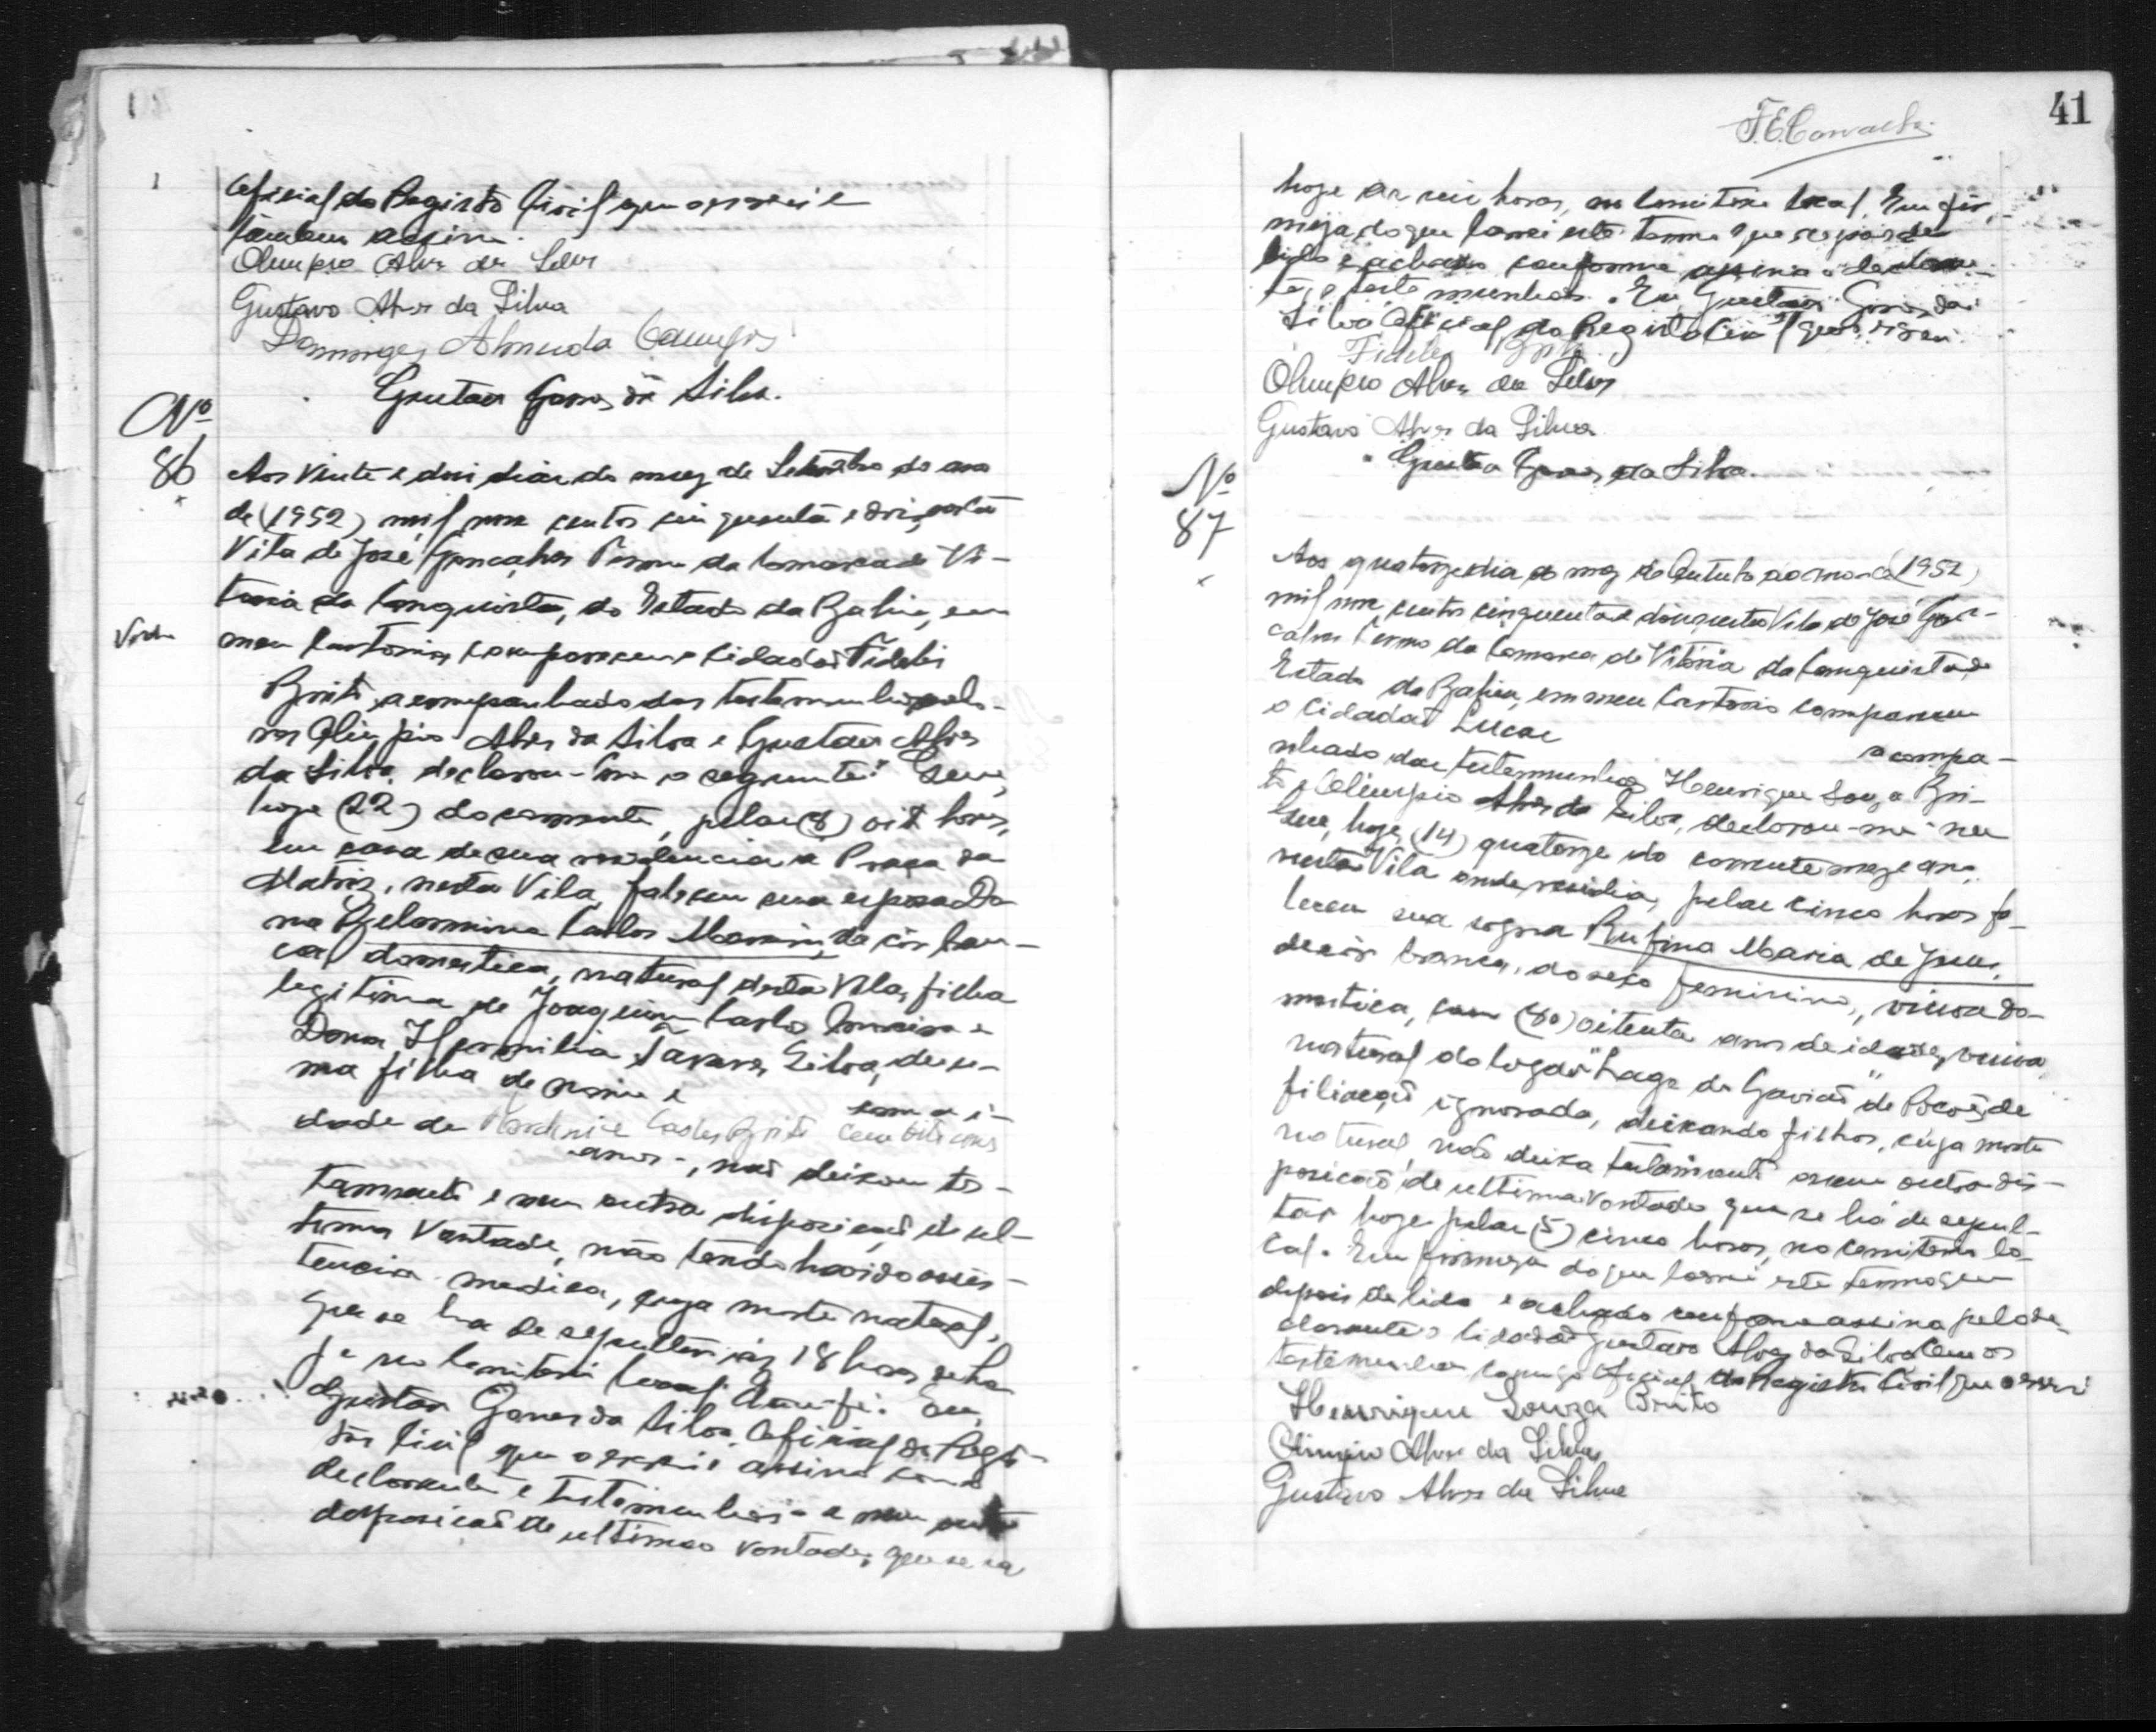 Oficial do Registo Civil que escrevi e
tambem assino.
Olimpio Alves da Silva
Gustavo Alves da Silva
Domingos Almeida Campos
Gustavo Gomes da Silva.
Nº
86
Aos vinte e dois dias do mez de Setembro do ano
de (1952) mil nove centos cinquenta e dois, nesta
Vila de José Gonçalves Termo da Comarca de Vi-
toria da Conquista, do Estado da Bahia, em
meu Cartorio, compareceu o cidadão Fideles
Brito, acompanhado das testemunhas
Olimpio Alves da Silva e Gustavo Alves
da Silva, declarou-me o seguinte: Que,
hoje (22) do corrente, pelas (8) oito horas,
em casa de sua residencia a Praça da
Matriz, nesta Vila, faleceu sua esposa Do-
na Belarmina Carlos de côr bran-
ca, domestica, natural desta Vila, filha
legitima de Joaquim Carlos e
Dona Hermilia Tavares Silva, deixou u-
ma filha de nome e
com a i-
dade de Carlos Brito com oito anos
anos -, não deixou tes-
tamento e nem outra disposição de ul-
tima Vontade, não tendo havido assis-
tencia medica, cuja morte natural,
que se ha de sepultar às 18 horas de ho-
je no Cemiterio local. Dou fé. Eu,
Gustavo Gomes da Silva, Oficial do Regis-
to Civil que o escrevi e assino com o
declarante e testemunhas e nem outra
desposição de ultimas vontades, que se ha
41
hoje as seis horas, no Cemiterio local. Em fir-
meza do que lavrei este termo que depois de
lido e achado conforme assina o declaran-
te, e testemunhas. Eu, Gustavo Gomes da
Silva Oficial do Registo Civil que o escrevi.
Fideles Brito
Olimpio Alves da Silva
Gustavo Alves da Silva
Gustavo Gomes da Silva.
Nº
87
Aos quatorze dia do mez de Outubro do ano de (1952)
mil nove centos cinquenta e dois, nesta Vila de José Gon-
calves Termo da Comarca de Vitória da Conquista do
Estado da Bahia, em meu Cartorio compareceu
o cidadão Lucas
acompa-
nhado das testemunhas Henrique Souza Bri-
to e Olimpio Alves da Silva, declarou-me
Que, hoje (14) quatorze do corrente mez e ano,
nesta Vila onde residia, pelas cinco horas fa-
leceu sua sogra Rufina Maria de Jesus,
de côr branca, do sexo feminino, viuva do-
mestica, com (80) oitenta anos de idade, viuva,
natural do lugar "Lage do Gavião" de Poções, de
filiação ignorada, deixando filhos, cuja morte
natural, não deixa testamento e nem outra dis-
posição de ultima vontade que se há de sepul-
tar hoje pelas (5) cinco horas, no cemiterio lo-
cal. Em firmeza do que lavrei este termo que
depois de lido e achado conforme assina pelo de-
clarante o cidadão Gustavo Alves da Silva com as
testemunhas comigo Oficial do Registo Civil que escrevi
Henrique Souza Brito
Olimpio Alves da Silva
Gustavo Alves da Silva